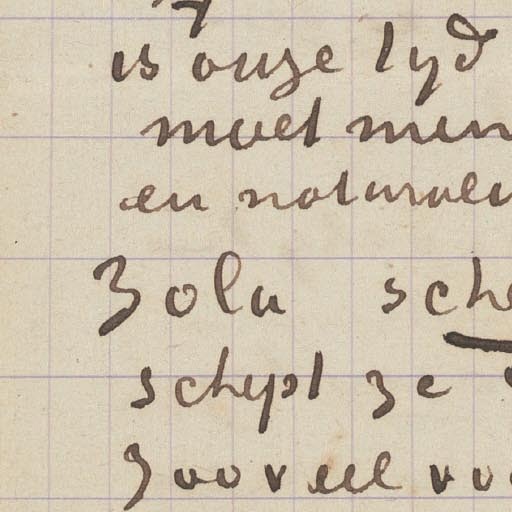 is onze tyd
moet men
en natuur
Zola sche
schept ze
Zoo veel voo